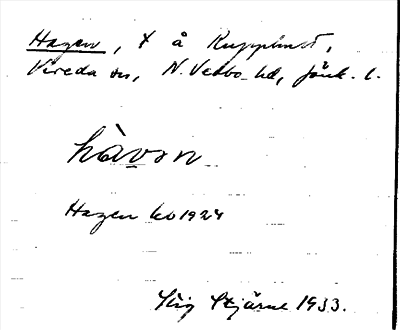 Hagen, X å Rupphult,
Vireda sn, N. Vedbo hd, Jönk. l.
hàvən
Hagen kb 1924
Stig Stjärne 1933.